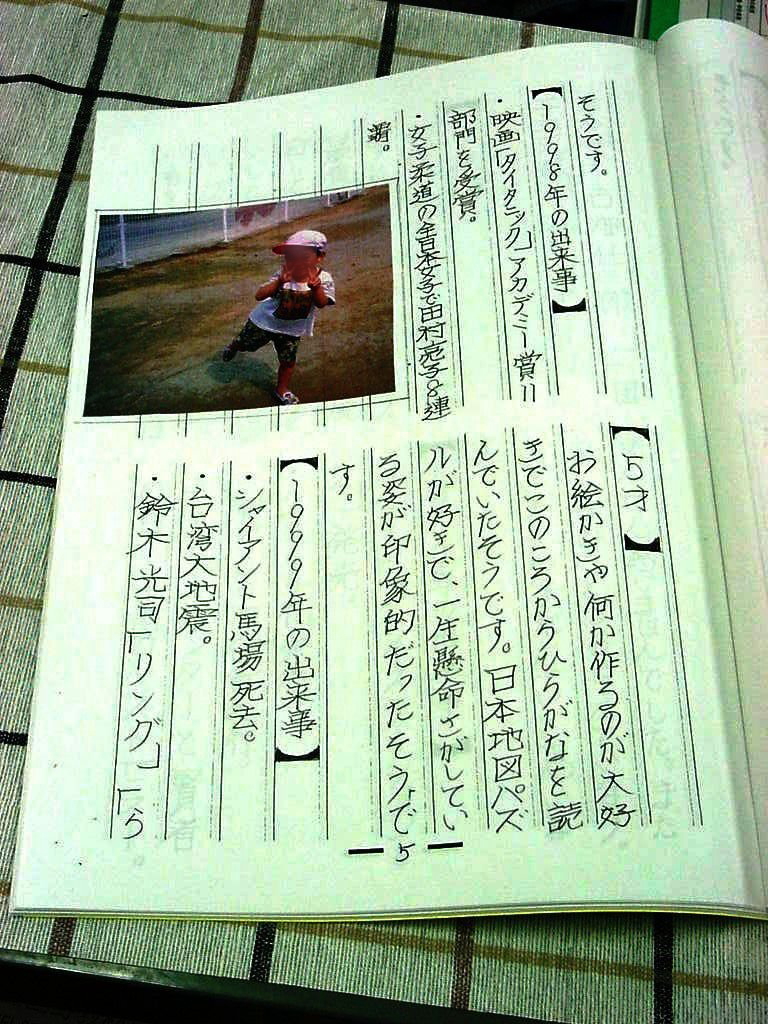 そうです。
【1998年の出来事】
・映画「タイタニック」アカデミー賞11
部門を受賞。
・女子柔道の全日本女子で田村亮子8連
覇。
【5才】
お絵かきや何か作るのが大好
きでこのころからひらがなを読
んでいたそうです。日本地図パズ
ルが好きで、一生懸命さがしてい
る姿が印象的だったそうで
す。
【1999年の出来事】
・ジャイアント馬場死去。
・台湾大地震。
・鈴木光司「リング」「ら
5